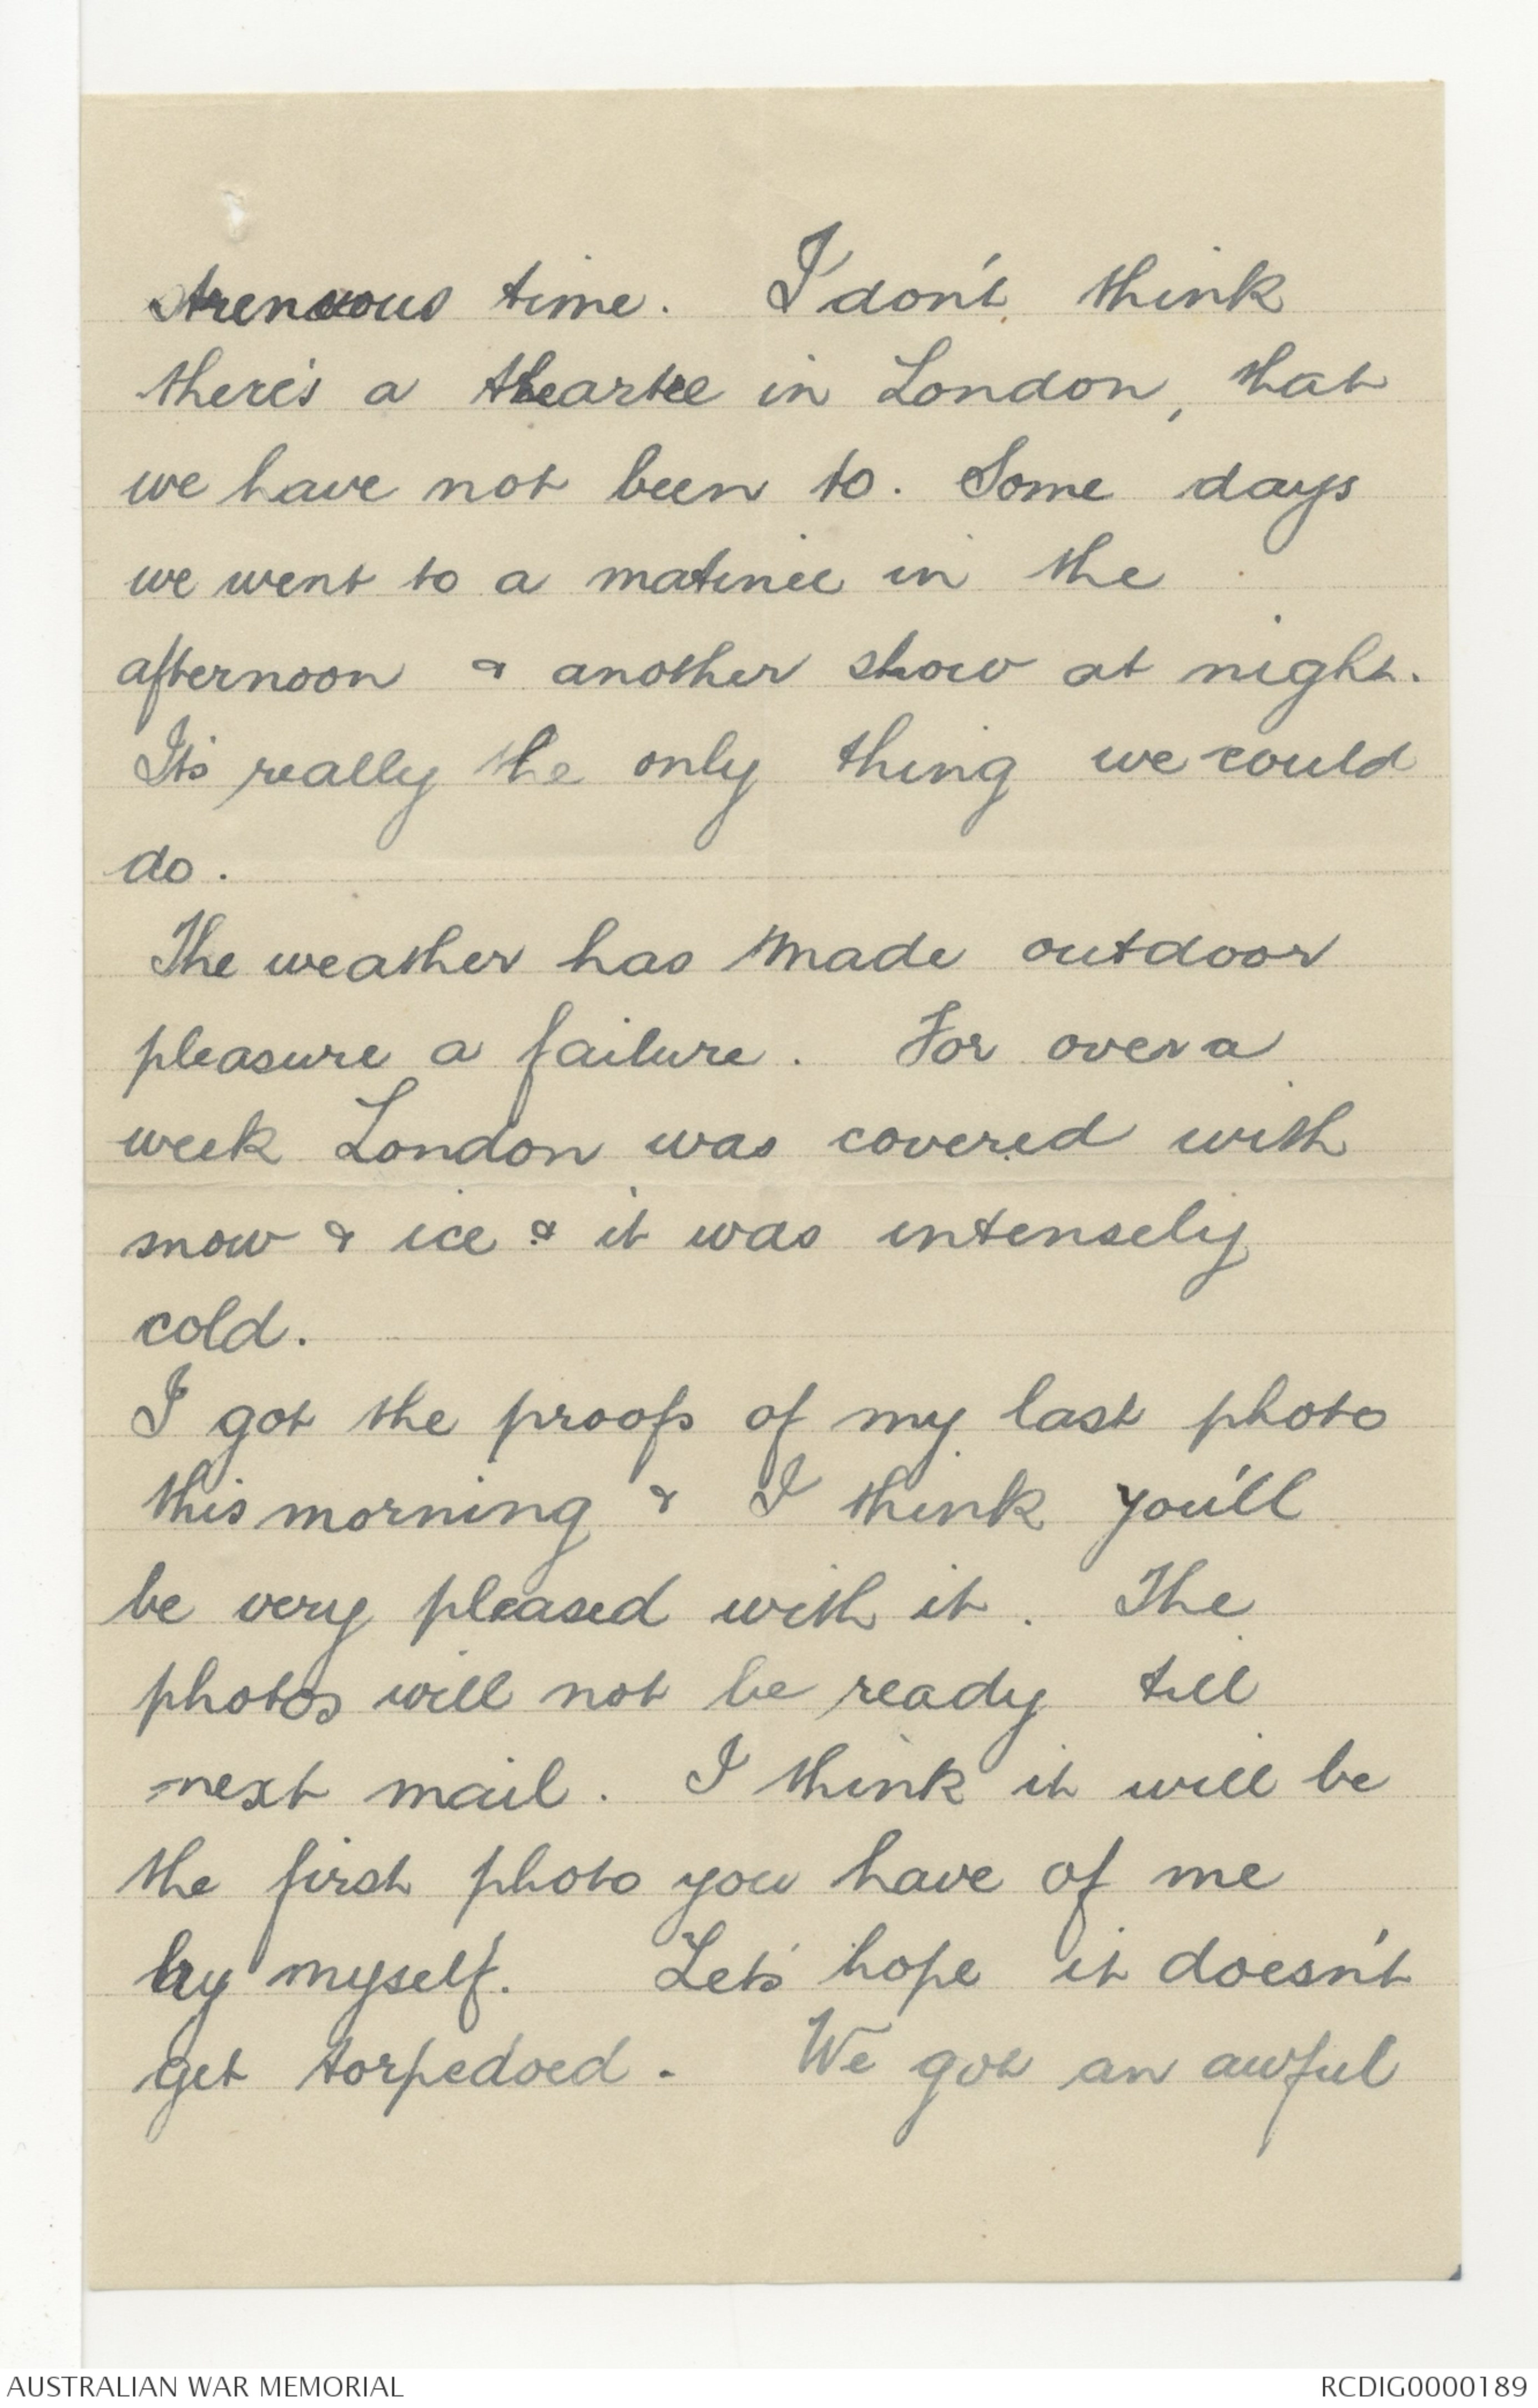 strenuous time. I don't think
there's a theartre in London, that
we have not been to. Some days
we went to a matinee in the
afternoon & another show at night.
It's really the only thing we could
do.
The weather has made outdoor
pleasure a failure. For over a
week London was covered with
snow & ice & it was intensely
cold.
I got the proofs of my last photo
this morning & I think you'll
be very pleased with it. The
photos will not be ready till
next mail. I think it will be
the first photo you have of me
by myself. Let's hope it doesn't
get torpedoed. We got an awful
AUSTRALIAN WAR MEMORIAL
RCDIG0000189